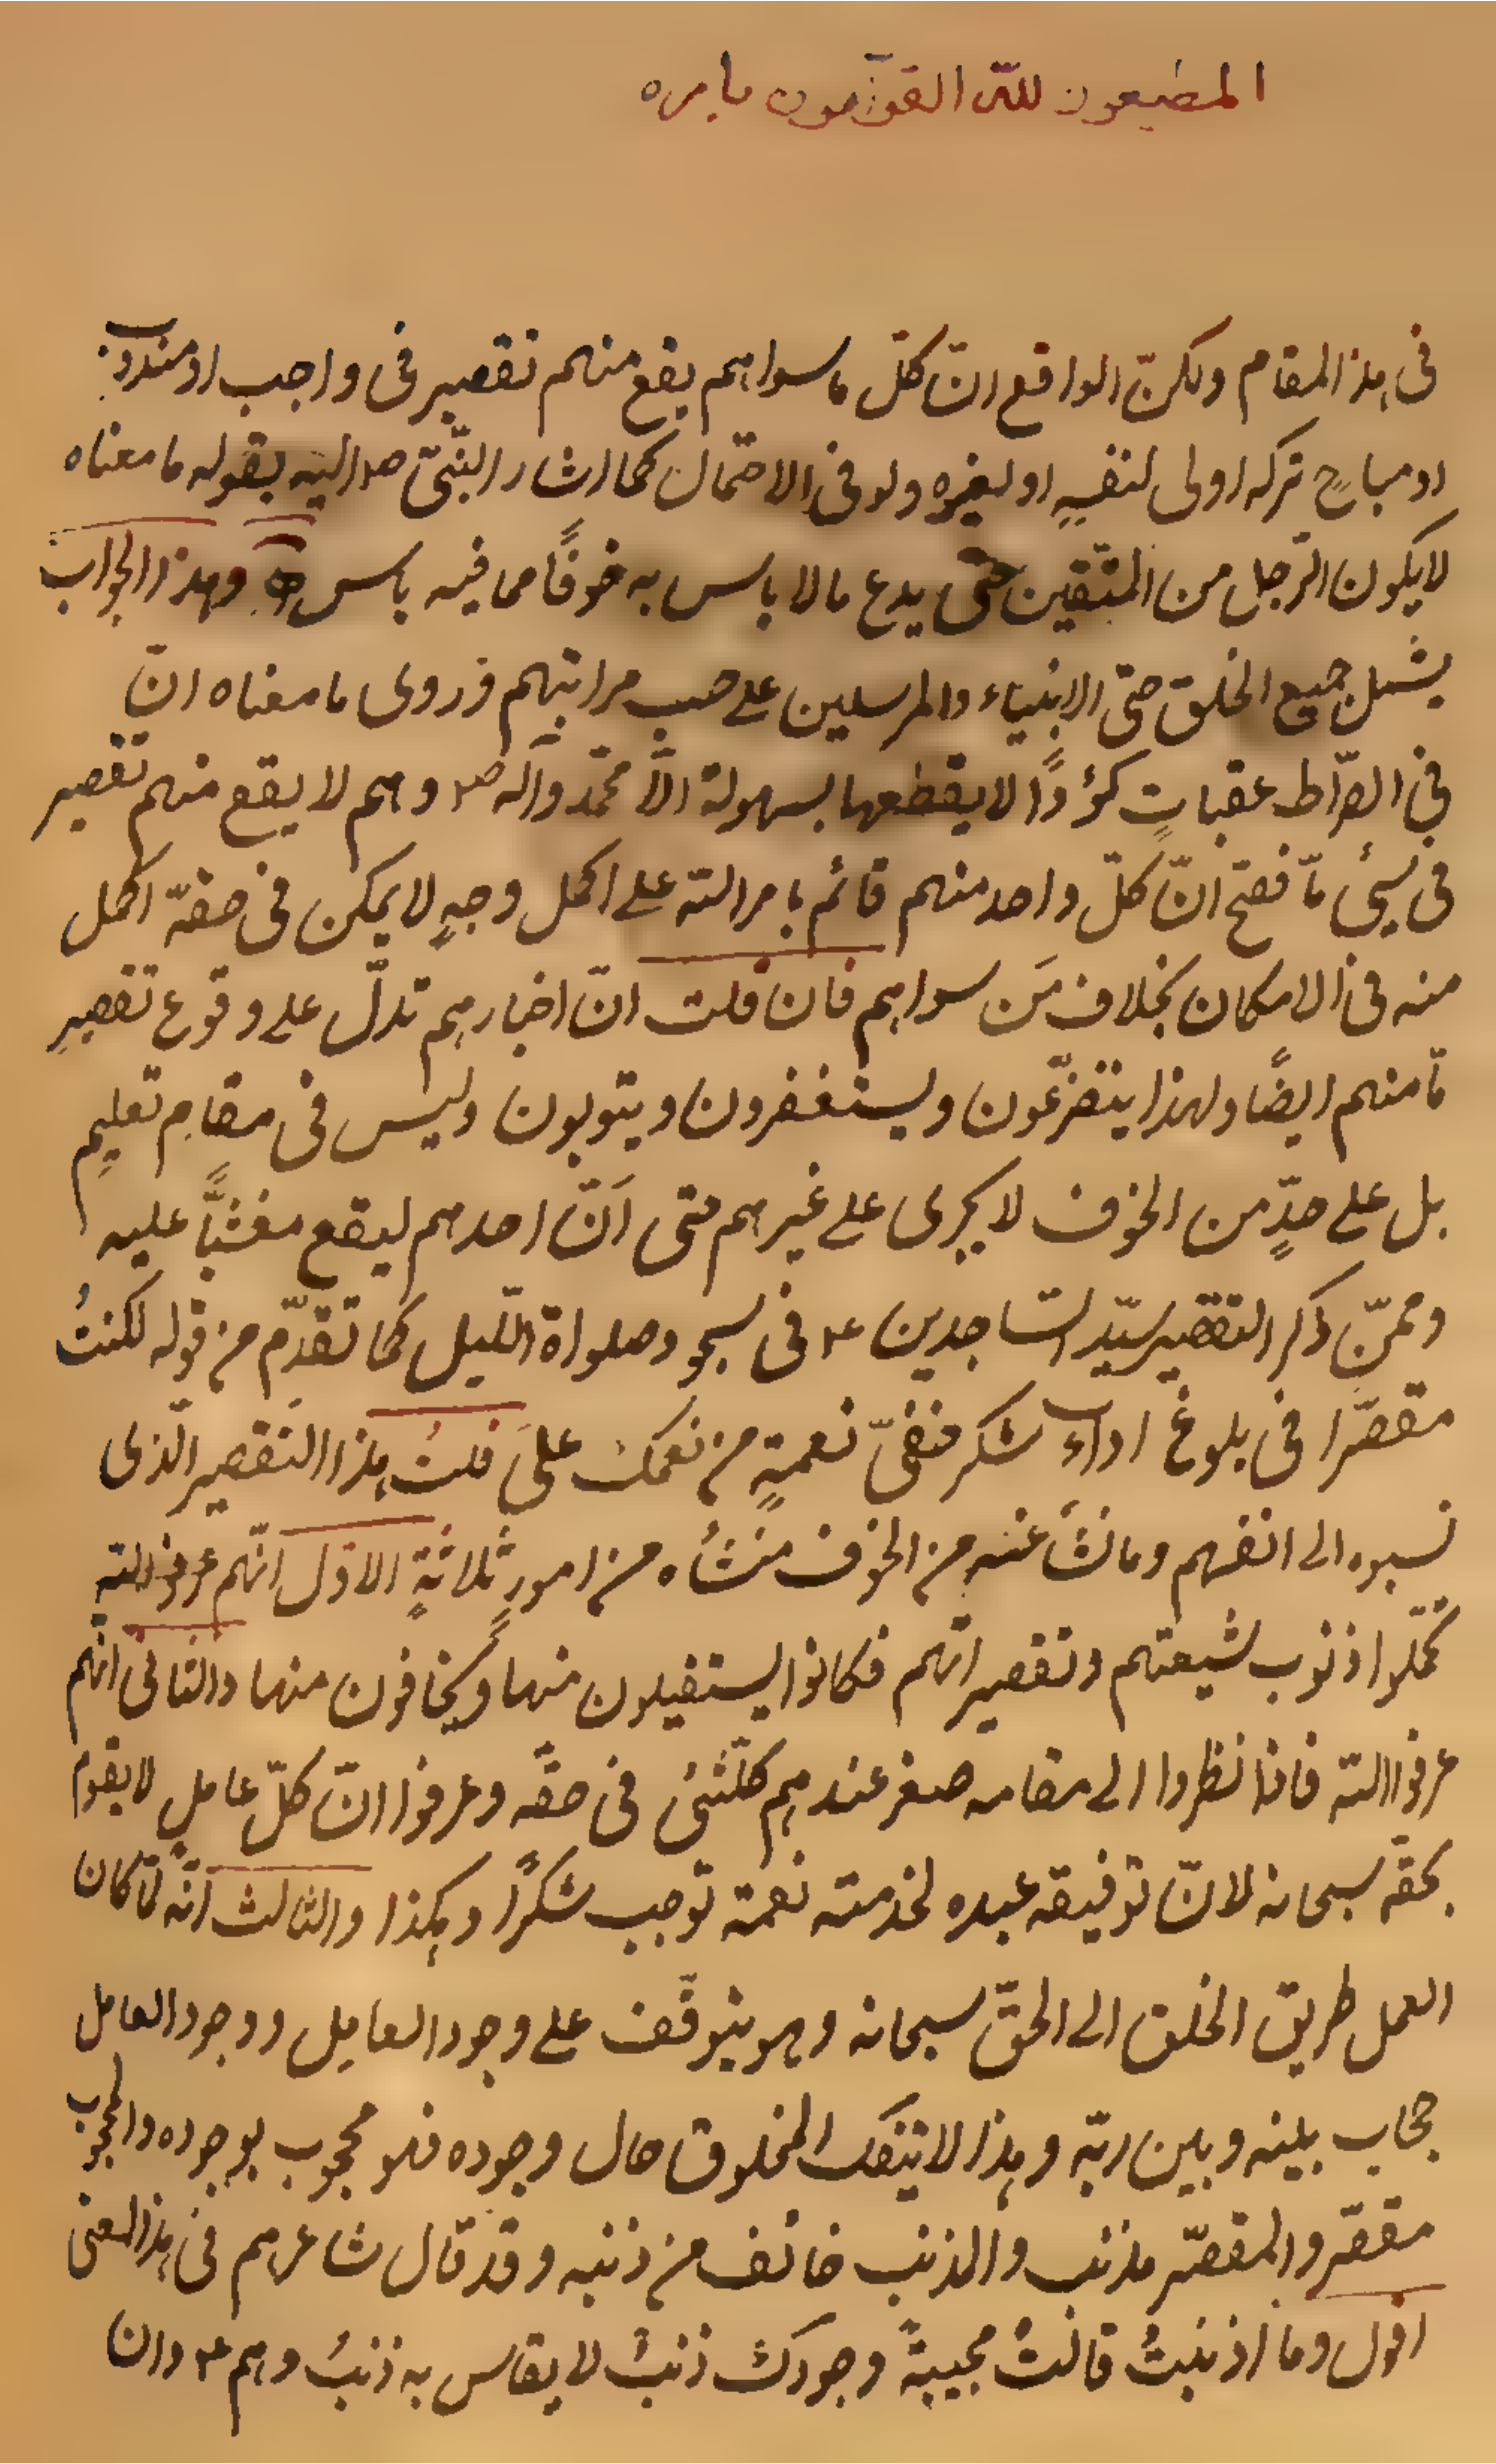 المطيعون لله القوّامون بامره
فى هذا المقام ولكنّ الواقع انّ كلّ ما سواهم يقع منهم تقصير فى واجب او مندوب
او مباحٍ تركه اولى لنفسِهِ او لغيره ولو فى الاحتمال كما اشار النّبىّ ص اليه بقوله ما معناه
لا يكون الرّجل من المتّقين حتّى يدع ما لا باس به خوفًا مما فيه باس وهذا الجواب
يشمل جميع الخلق حتّى الانبياء والمرسلين على حسب مراتبهم فروى ما معناه انّ
فى الصّراط عقباتٍ كؤدًا لا يقطعها بسهولة الّا محمّد وآله ص وهم لا يقع منهم تقصير
فى شئ مّا فصحّ انّ كلّ واحد منهم قائم بامر الله على اكمل وجهٍ لا يمكن فى حقّه اكمل
منه فى الامكان بخلاف مَن سواهم فان قلت انّ اخبارهم تدلّ على وقوع تقصيرٍ
مّا منهم ايضًا ولهذا يتضرّعون ويستغفرون ويتوبون وليس فى مقامِ تعليمٍ
بل على حدٍّ من الخوف لا يجرى على غيرهم حتى اَنّ احدهم ليقع مغشيًّا عليه
وممّن ذكر التقصير سيّد السّاجدين ع فى سجود صلواة اللّيل كما تقدّم من قوله لكنتُ
مقصّرا فى بلوغ اداء شكر خفىّ نعمةٍ من نعمك علىَّ قلتُ هذا التقصير الّذى
نسبوه الى انفسهم وما نشأ عنه من الخوف منشأه من امورٍ ثلاثةٍ الاوّل انّهم ع
تحمّلوا ذنوب شيعتهم وتقصيراتهم فكانوا يستقيلون منها ويخافون منها والثانى انّهم
عرفوا الله فاذا نظروا الى مقامه صغر عندهم كلّشئ فى حقّه وعرفوا انّ كلّ عاملٍ لا يقوم
بحقّه سبحانه لانّ توفيقه عبده لخدمته نعمة توجب شكرًا وهكذا والثالث انّه لمّا كان
العمل طريق الخلق الى الحقّ سبحانه وهو يتوقّف على وجود العامِل ووجود العامل
حجاب بينه وبين ربّه وهذا لا ينفك المخلوق حال وجوده فهو محجوب بوجوده والمحجوب
مقصّر والمقصّر مذنب والمذنب خائف من ذنبه وقد قال شاعرهم فى هذا المعنى
اقول وما اذنبتُ قالتْ مجيبةً وجودك ذنبٌ لا يقاس به ذنبُ وهم ع وان